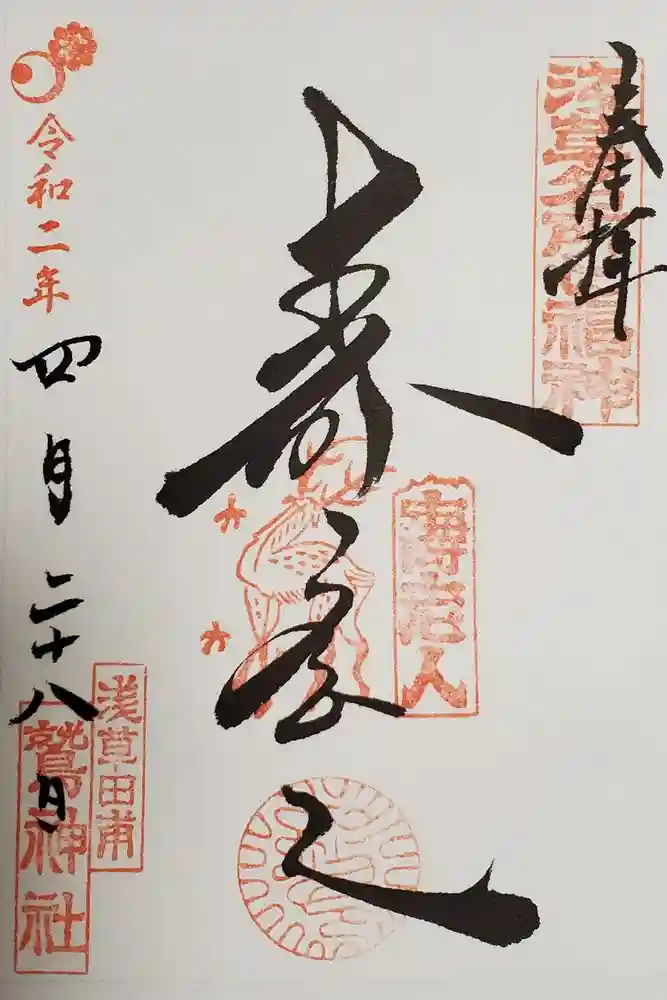 奉拝
浅草名所七福神
壽老人
寿老人
令和二年四月二十八日
浅草田甫
鷲神社